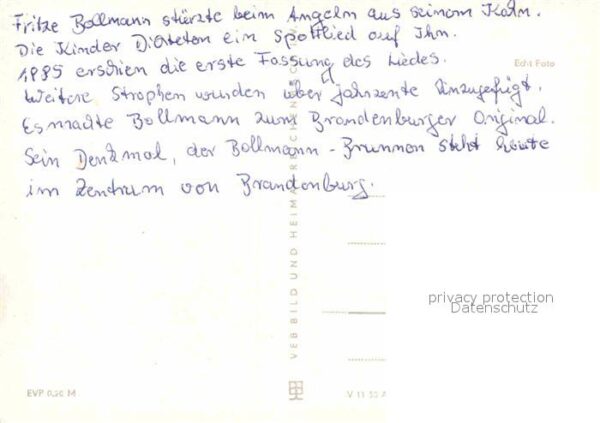 Fritze Bollmann stürzte beim Angeln aus seinem Kahn.
Die Kinder Dichteten ein Spottlied auf Ihn.
1885 erschien die erste Fassung des Liedes.
Echt Foto
Weitere Strophen wurden über Jahrzente hinzugefügt.
Es machte Bollmann zum Brandenburger Original.
Sein Denkmal, der Bollmann-Brunnen steht heute
im Zentrum von Brandenburg.
VEB BILD UND HEIMAT REICHENBACH
privacy protection
Datenschutz
EVP 0,20 M
V 11 50 A